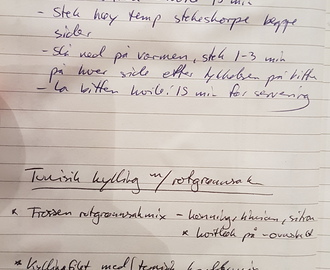 - Stek høy temp stekeskorpe begge
sider
- Slå ned på varmen, stek 1-3 min
på hver side etter tykkelsen på biten
- La biten hvile i 15 min før servering
Tunisisk kylling m/rotgrønnsak
* Frossen rotgrønnsakmix - honning, timian, sitron
* hvitløk på - ovnsbakt
* Kyllingfilet med